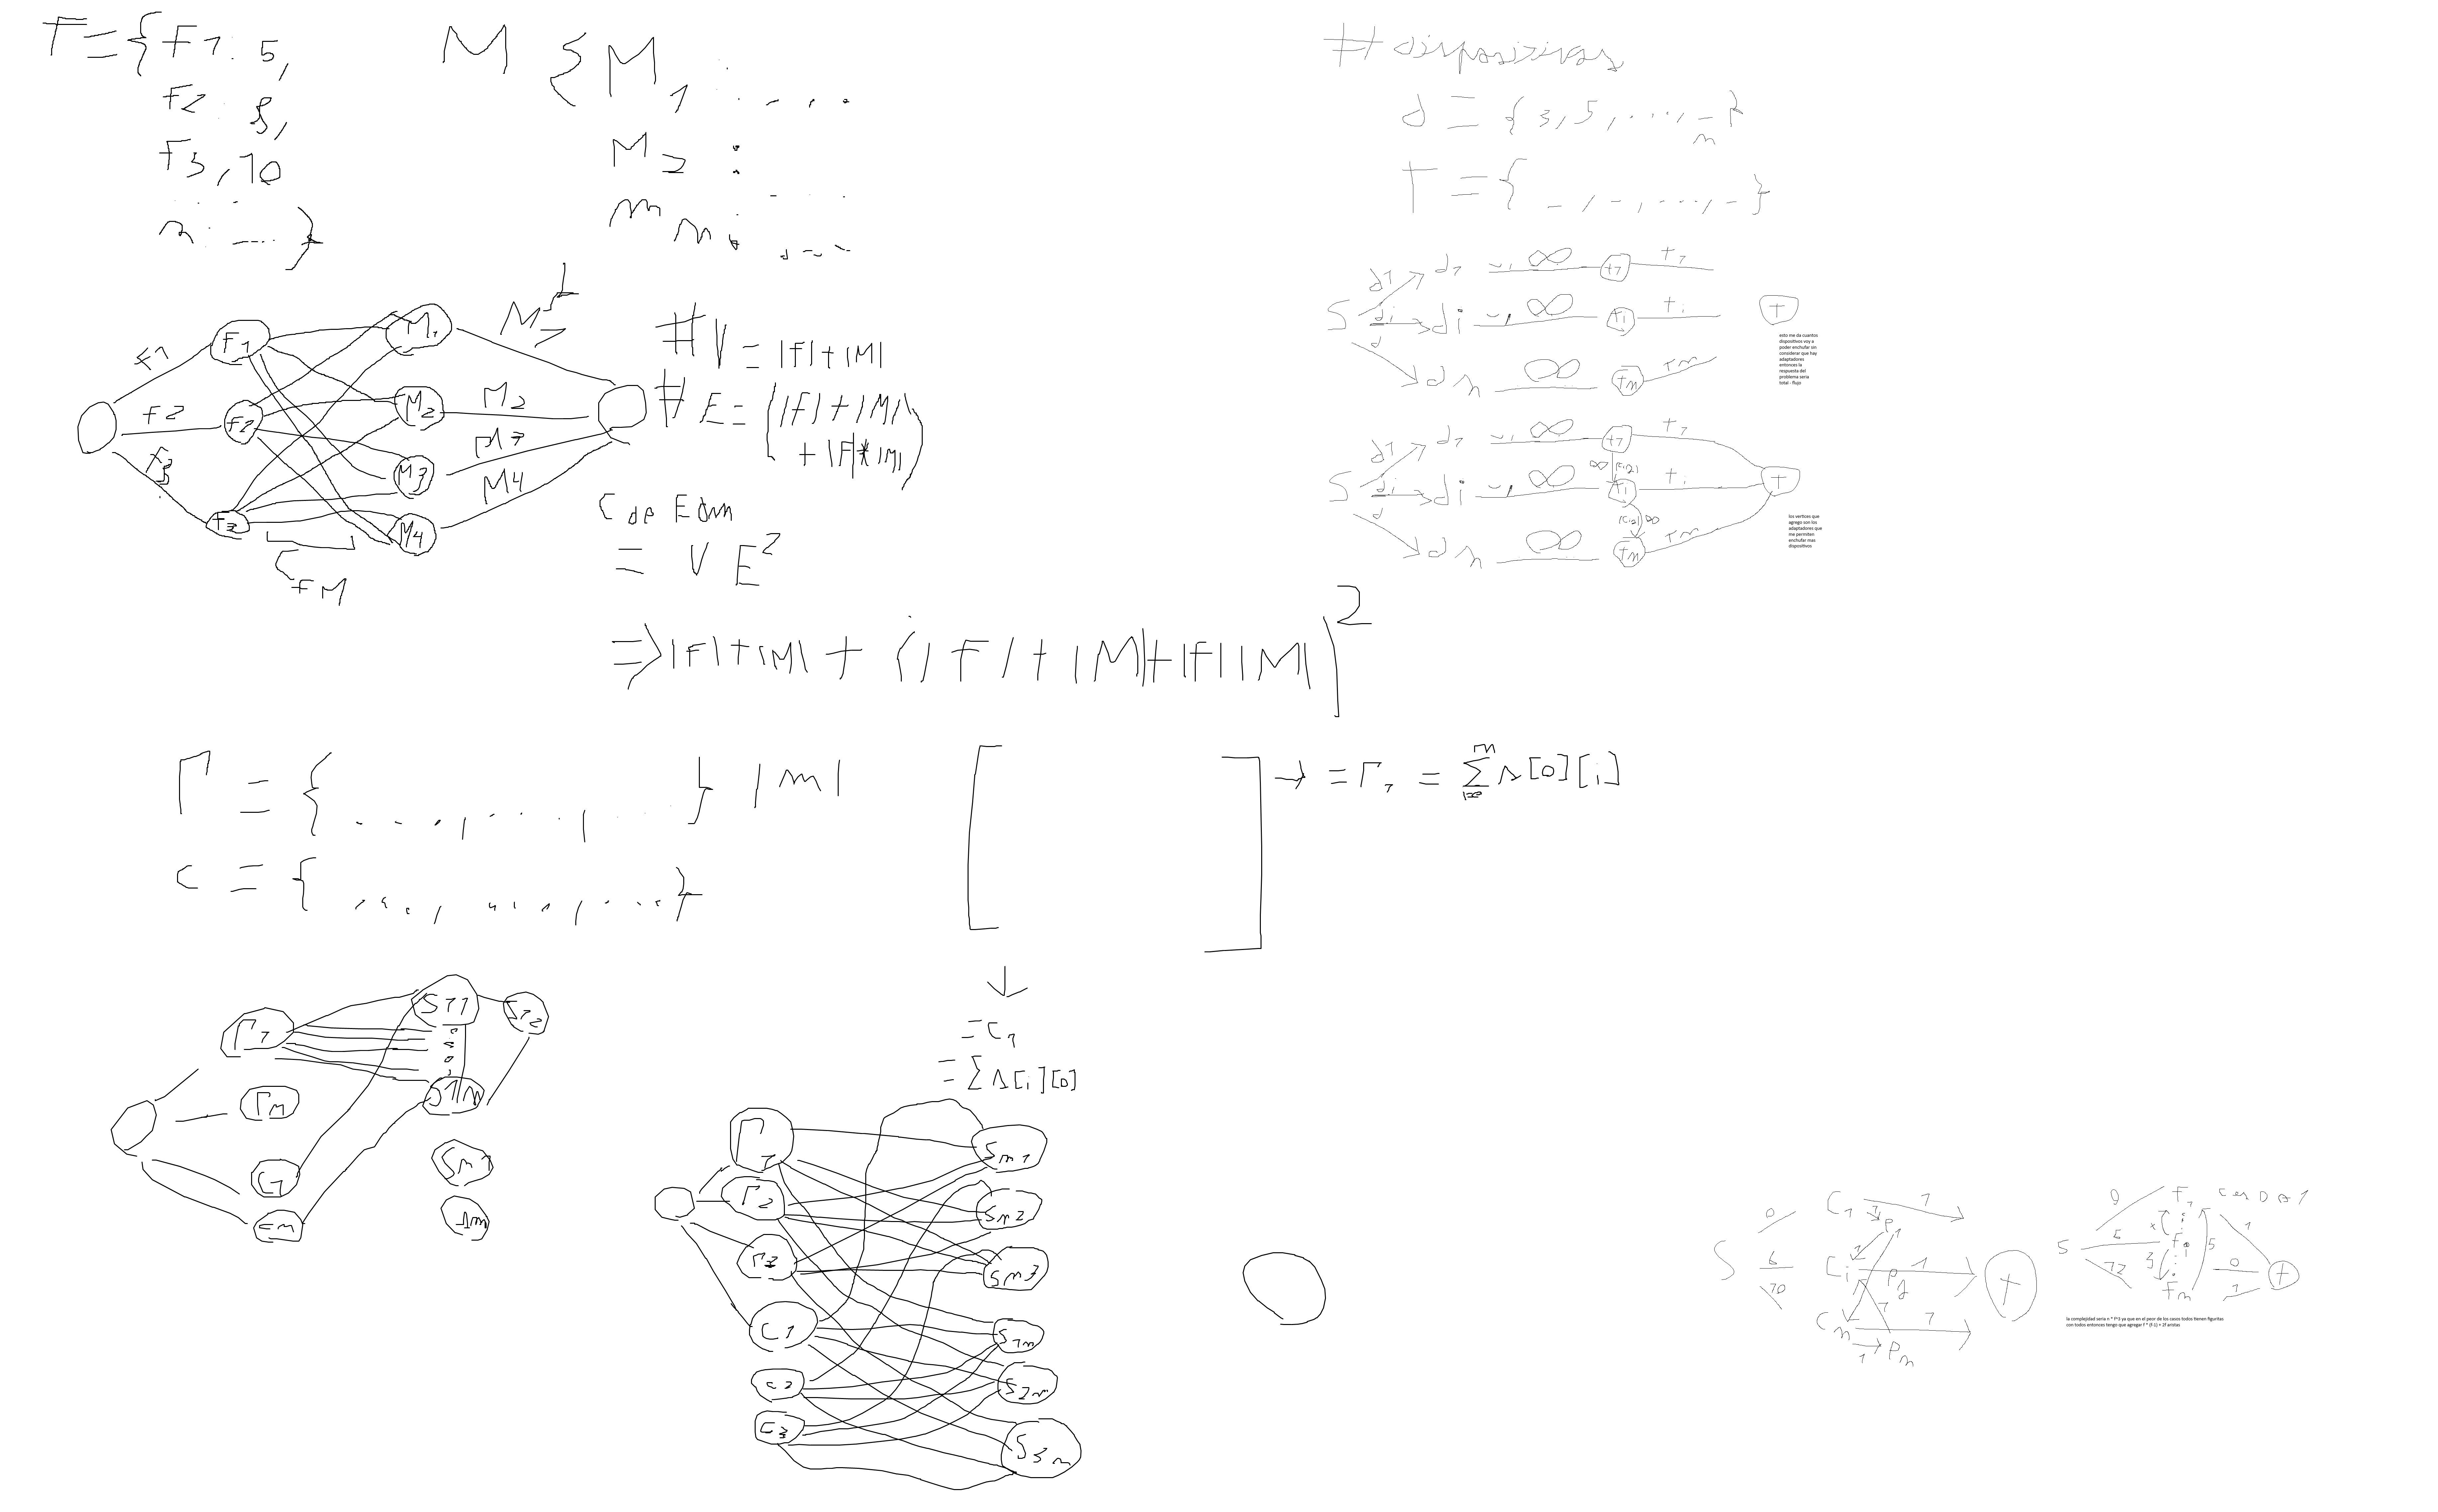 F = { F1 : 5,
F2 : 8,
F3 , 10
n : .... }
M { M1 : ....
M2 :
mn : ....
F1
F2
F3
f1
f2
f3
M1
M2
M3
M4
M2
M3
M4
CFM
#V = |F| + |M|
#E = (|F| + |M| + |F| * |M|)
C de Edm
= V E²
=> |F| + |M| + (|F| + |M| + |F| |M|)²
# dispositivos
d = { 3, 5, ...., _ }
n
T = { _, _, ...., _ }
S d1 d1 ∞ t1 t1
di di ∞ ti ti
d dn ∞ tn tn
T
esto me da cuantos
dispositivos voy a
poder enchufar sin
considerar que hay
adaptadores
entonces la
respuesta del
problema seria
total - flujo
S d1 d1 ∞ t1 t1
di di ∞ ti ti
d dn ∞ tn tn
T
los vertices que
agrego son los
adaptadores que
me permiten
enchufar mas
dispositivos
r = { ...., ...., .... } |m|
c = { ...., ...., .... }
[ ] → = r1 = Σ A[0][i]
↓
= c1
= Σ A[i][0]
r1
rm
c1
cm
S11
S12
S1m
Sm1
r1
r2
r3
c1
c2
c3
Sm1
Sm2
Sm3
S1m
S2m
S3m
S 0 C1 1
6 Ci 1
10 Cn 1
P1
Pj
Pn
T
S 0 F1
5 Fi 0
12 Fn 1
T
la complejidad seria n * f^3 ya que en el peor de los casos todos tienen figuritas
con todos entonces tengo que agregar f * (f-1) + 2f aristas